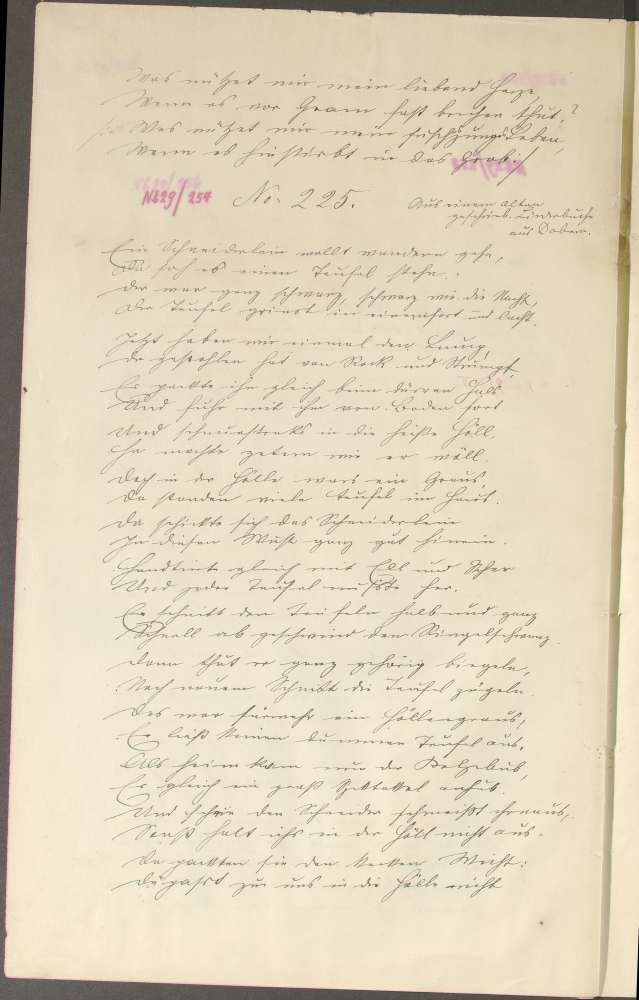 Was nützet mir mein liebend Herze,
Wenn es vor Gram fast brechen thut?
Was nützet mir mein Leben,
Wenn es hinstirbt in das Grab.
N629/254 No. 225.
Aus einem alten
geschrieb. Liederbuche
aus Dobern.
Ein Schneiderlein wollt wandern gehn,
Da sah es einen Teufel stehn.
Der war ganz schwarz, schwarz wie die Nacht,
Der Teufel grinst in einemfort und lacht.
Jetzt haben wir einmal den Lump,
Der gestohlen hat von Rock und Strumpf.
Er packte ihn gleich beim dürren Hals
Und fuhr mit ihm vom Boden fort
Und schnurstraks in die heiße Höll,
Er mochte zetern wie er wöll.
Doch in der Hölle wars ein Graus,
Da standen viele Teufel im Haus.
Da schickte sich das Schneiderlein
In diesen Wust ganz gut hinein.
Handtirte gleich mit Ell und Scher
Und jeder Teufel mußte her.
Er schnitt den Teufeln halb und ganz
Schnell ab geschwind den Ringelschwanz.
Dann thut er ganz gehörig biegeln,
Nach neuem Schnitt die Teufel zügeln.
Das war fürwahr ein Höllengraus,
Er ließ keinen dummen Teufel aus.
Als heim kam nun der Belzebub,
Er gleich ein groß Spektakel anhub.
Und schrie den Schneider schmeißt hinaus,
Sonst halt ichs in der Höll nicht aus.
Da packten sie den kecken Wicht:
Du passt zu uns in die Hölle nicht